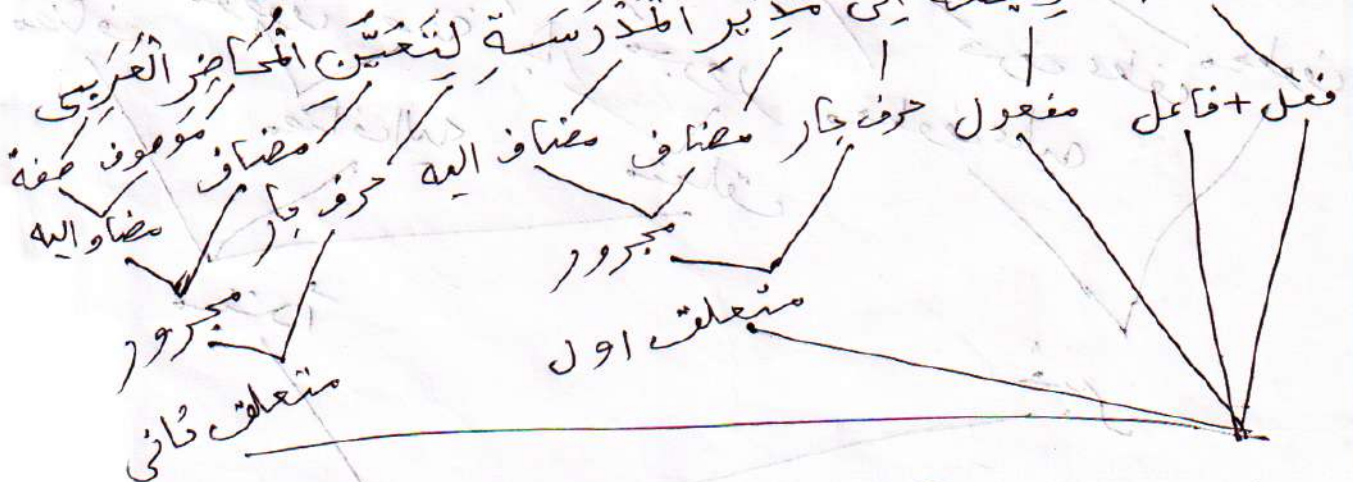 إلى مُدِيرِ الْمَدْرَسَةِ لِتَعَيُّنِ الْمُحَاضِرِ الْعَرَبِي
فعل + فاعل مفعول حرف جار مضاف مضاف اليه حرف جار مضاف موصوف صفة
مجرور مضاف اليه
متعلق اول مجرور
متعلق ثانی